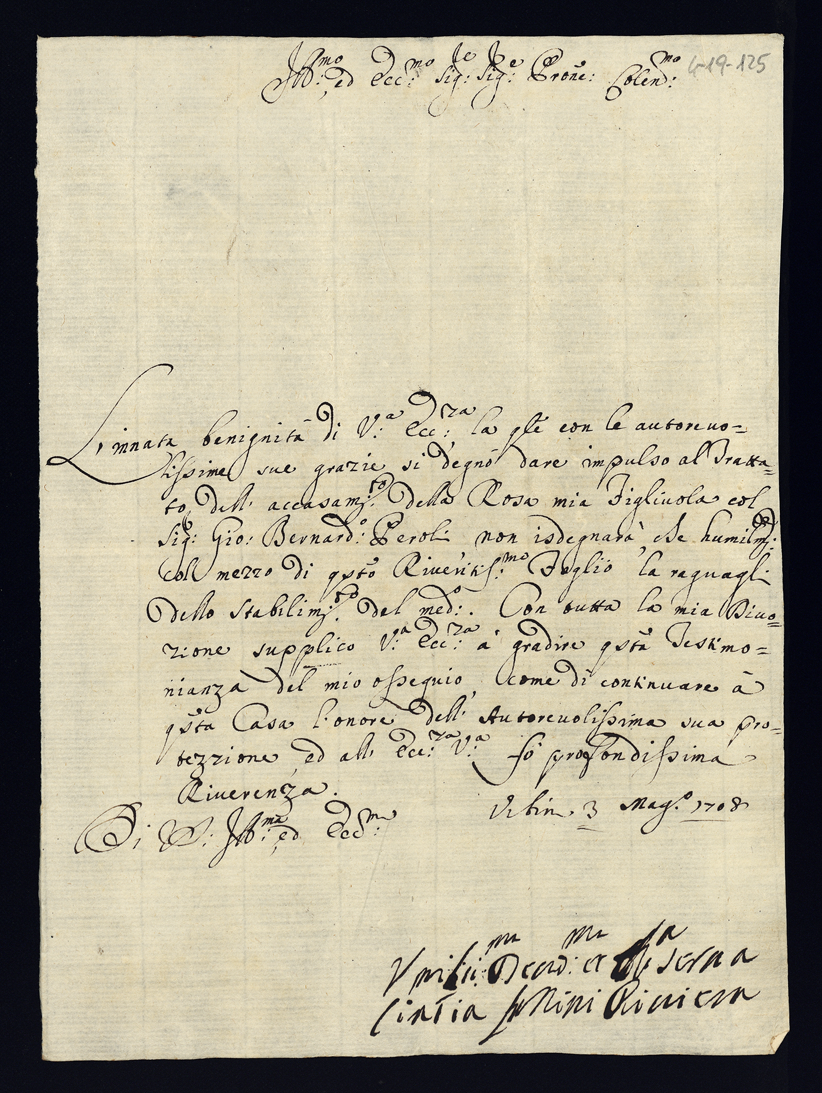 Ill.mo ed Ecc.mo Sig:re Sig:re Prone: Colen:mo 4-19-125
L'innata benignità di V.a Ecc:za la qle con le autoreuo=
lissime sue grazie si degnò dare impulso al Tratta=
to dell' accasam:to della Rosa mia Figliuola col
Sig: Gio: Bernard:o Peroli non isdegnarà che humilm:
col mezzo di qsto Riveritiss:mo Foglio la raguagli
dello stabilim:to del med:o. Con tutta la mia Divo=
zione supplico V:a Ecc:za à gradire qsta Testimo=
nianza del mio ossequio, come di continuare à
qsta Casa l'onore dell' Autoreuolissima sua pro=
tezzione, ed all' Ecc:za V:a fò profondissima
Riuerenza.
Urbin. 3 Mag:o 1708
Di V: Ill:ma ed Ecc:ma
Vmilis:ma Deuo:ma et Obb Serua
Cintia Riuiera